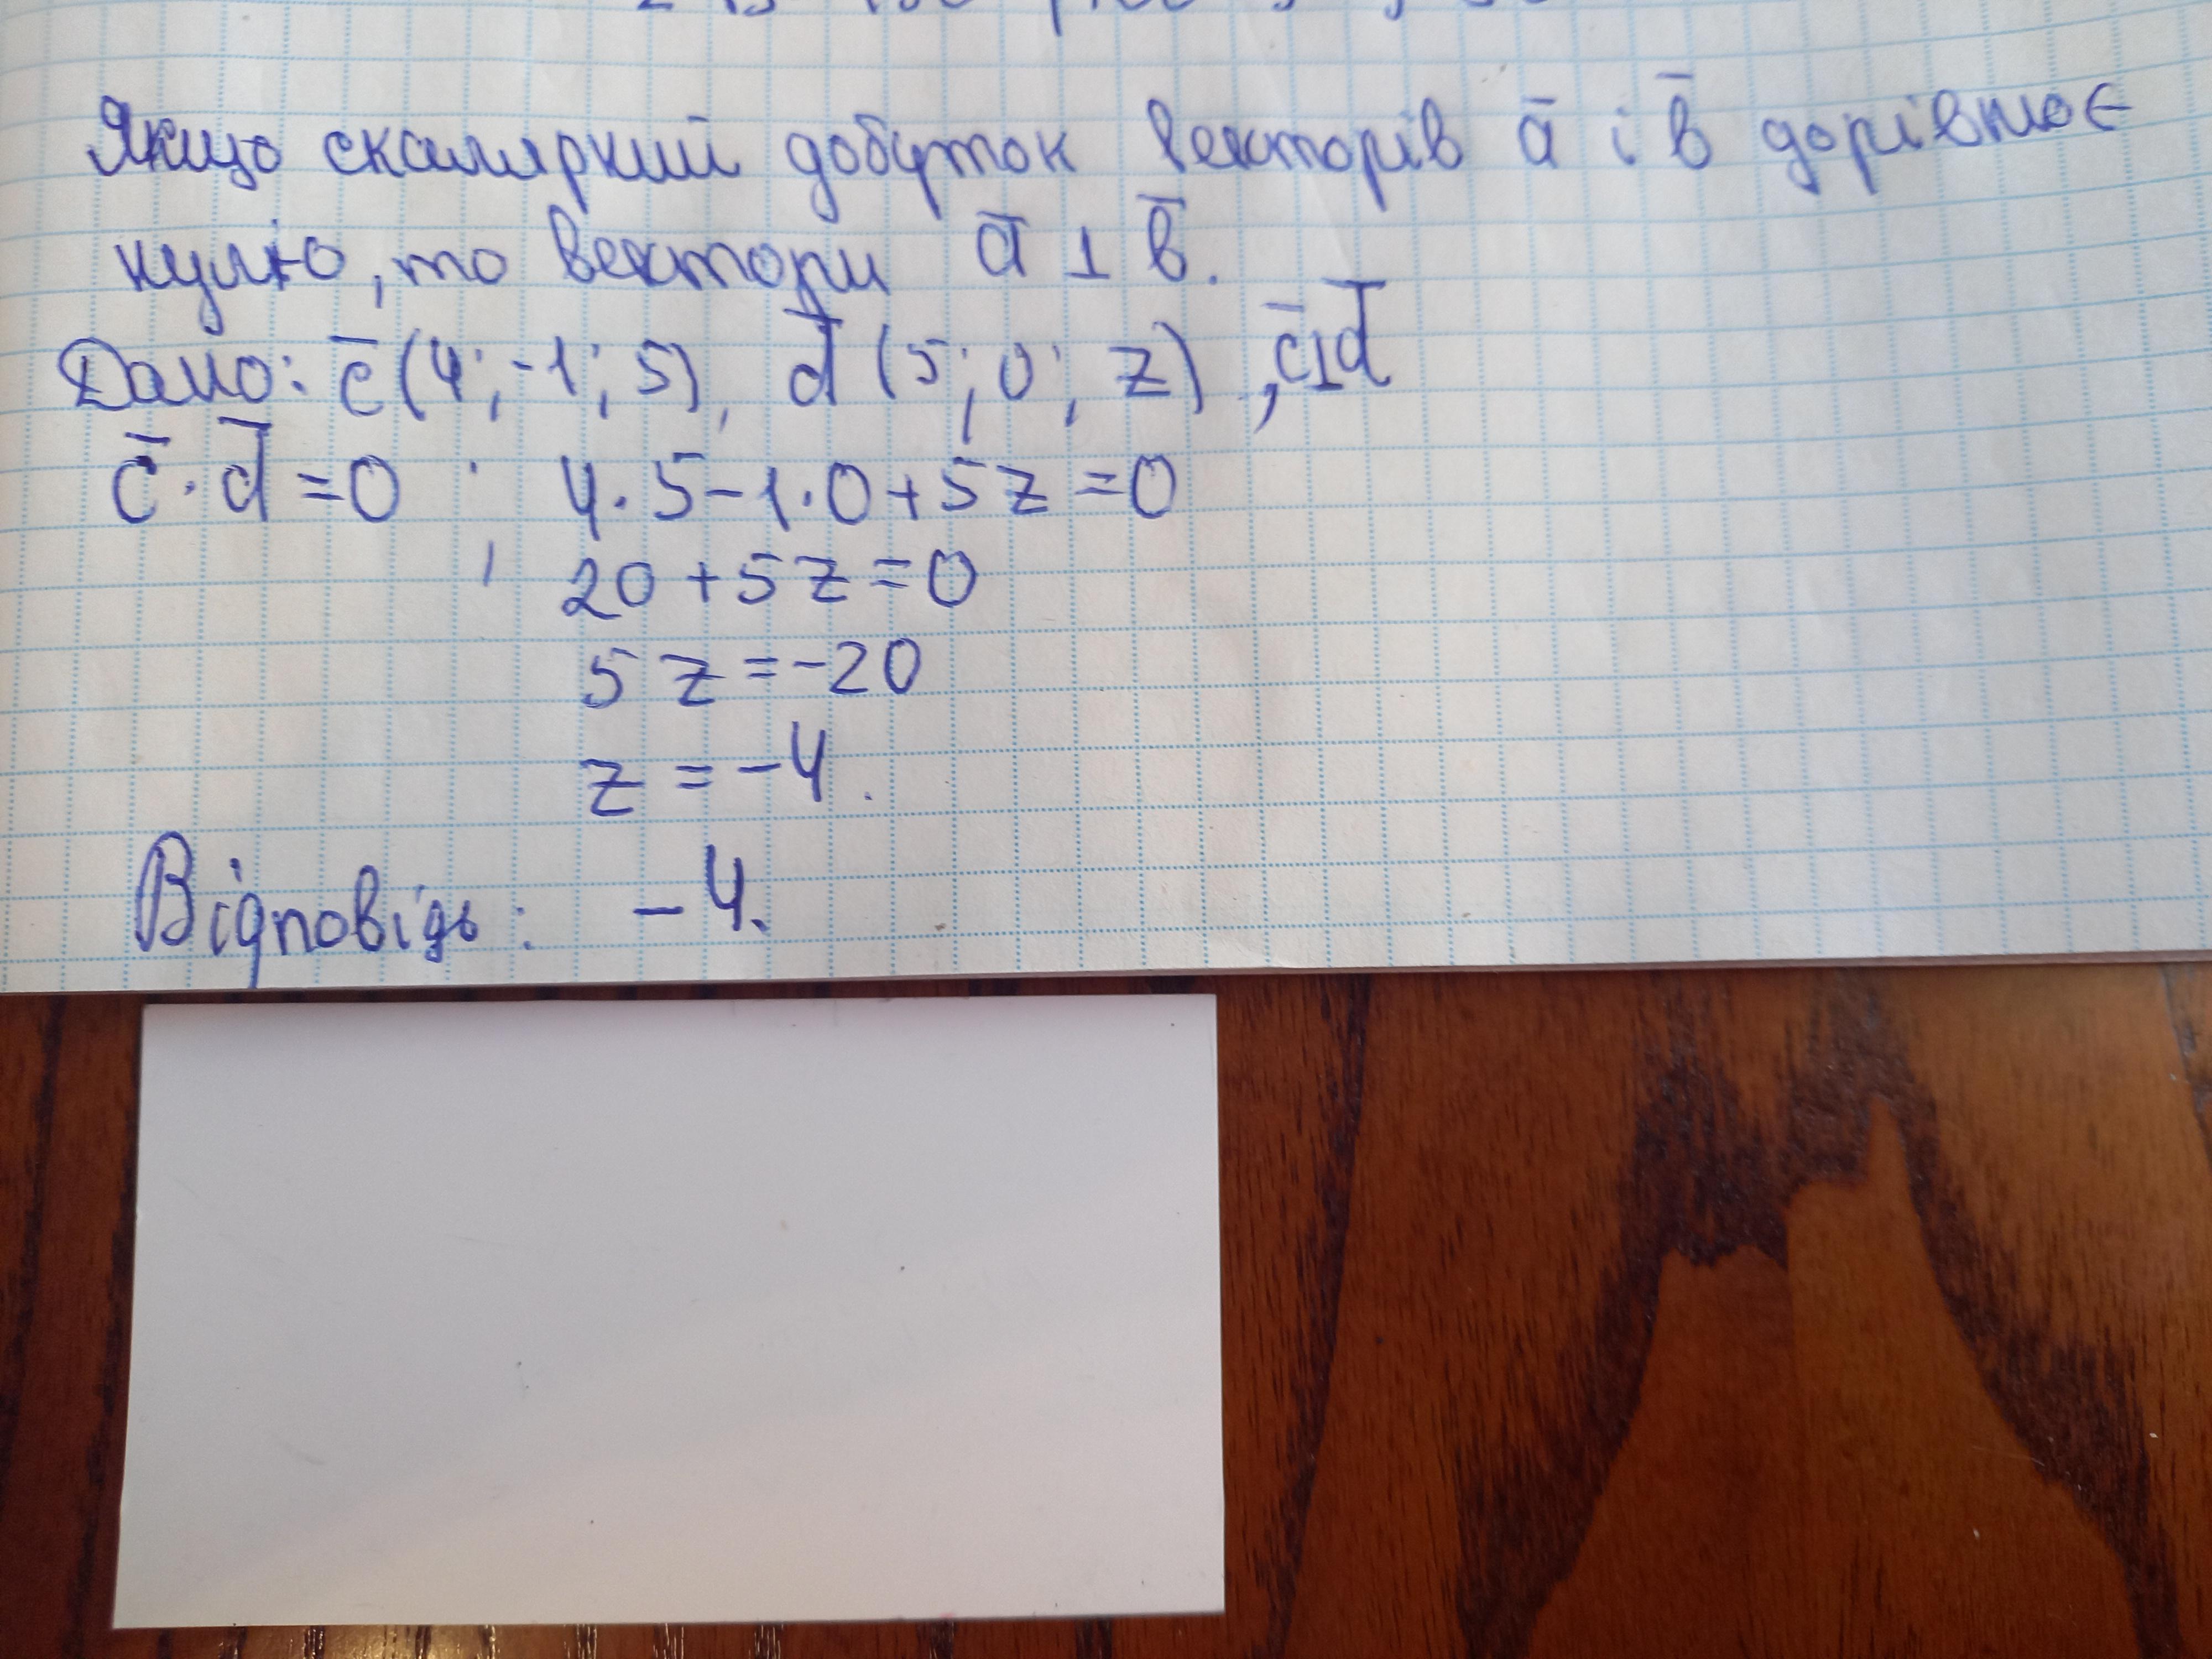 Якщо скалярний добуток векторів a̅ і b̅ дорівнює
нулю, то вектори a̅ ⊥ b̅.
Дано: c̅(4; -1; 5), d̅(5; 0; z), c̅⊥d̅
c̅ · d̅ = 0 ; 4·5-1·0+5z=0
20+5z=0
5z=-20
z = -4.
Відповідь: -4.